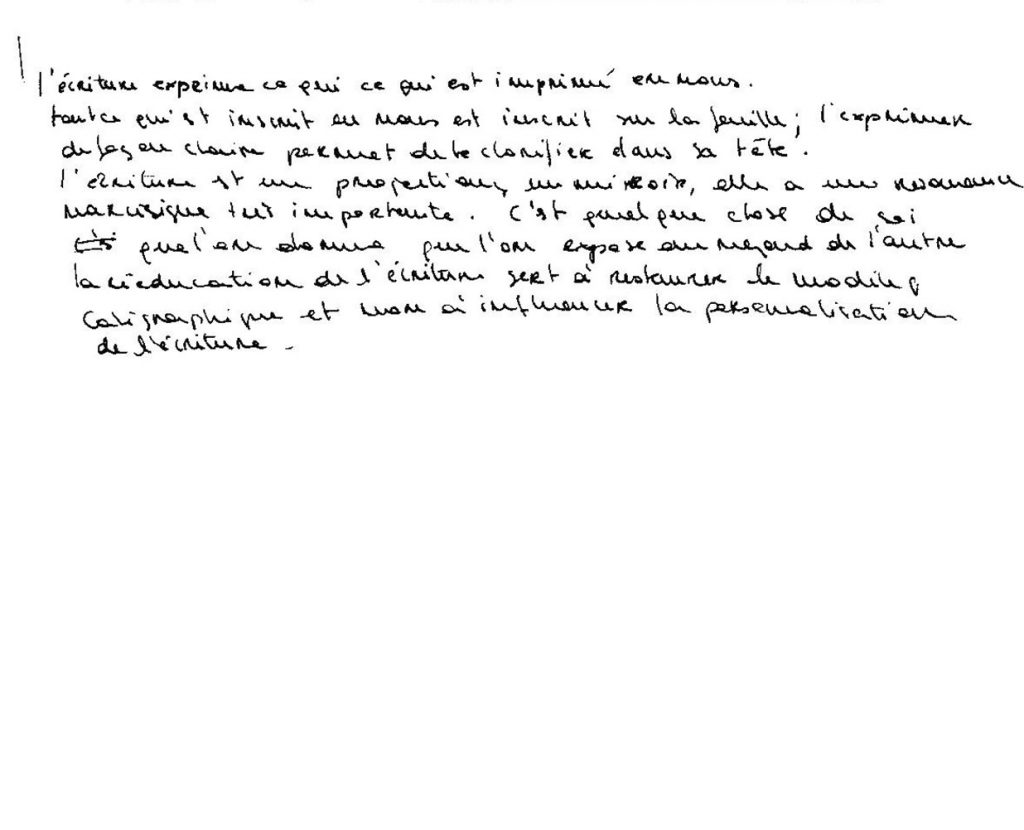 l'écriture exprime ce qui ce qui est imprimé en nous.
tout ce qui est inscrit en nous est inscrit sur la feuille; l'exprimer
de façon claire permet de le clarifier dans sa tête.
l'écriture est une projection, un miroir, elle a une résonance
narcissique très importante. C'est quelque chose de soi
que l'on donne que l'on expose au regard de l'autre
la rééducation de l'écriture sert à restaurer le
caligraphique et non à influencer la personnalisation
de l'écriture.